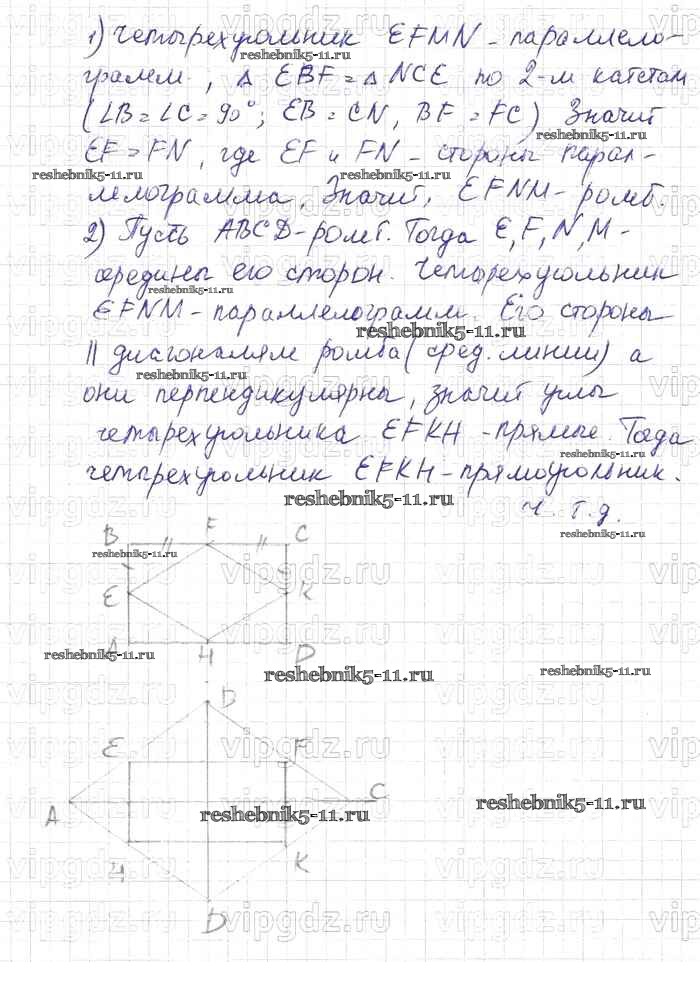 1) Четырехугольник EFMN - параллело-
грамм, Δ EBF = Δ NCE по 2-м катетам
(∠B = ∠C = 90°; EB = CN, BF = FC) Значит
EF = FN, где EF и FN - стороны парал-
лелограмма. Значит, EFNM - ромб.
2) Пусть ABCD - ромб. Тогда E, F, N, M -
середины его сторон. Четырехугольник
EFNM - параллелограмм. Его стороны
|| диагоналям ромба (сред. линии) а
они перпендикулярны, значит углы
четырехугольника EFKH - прямые. Тогда
четырехугольник EFKH - прямоугольник.
ч. т. д.
B F C
E K
A H D
B
E F
A C
H K
D
reshebnik5-11.ru
vipgdz.ru